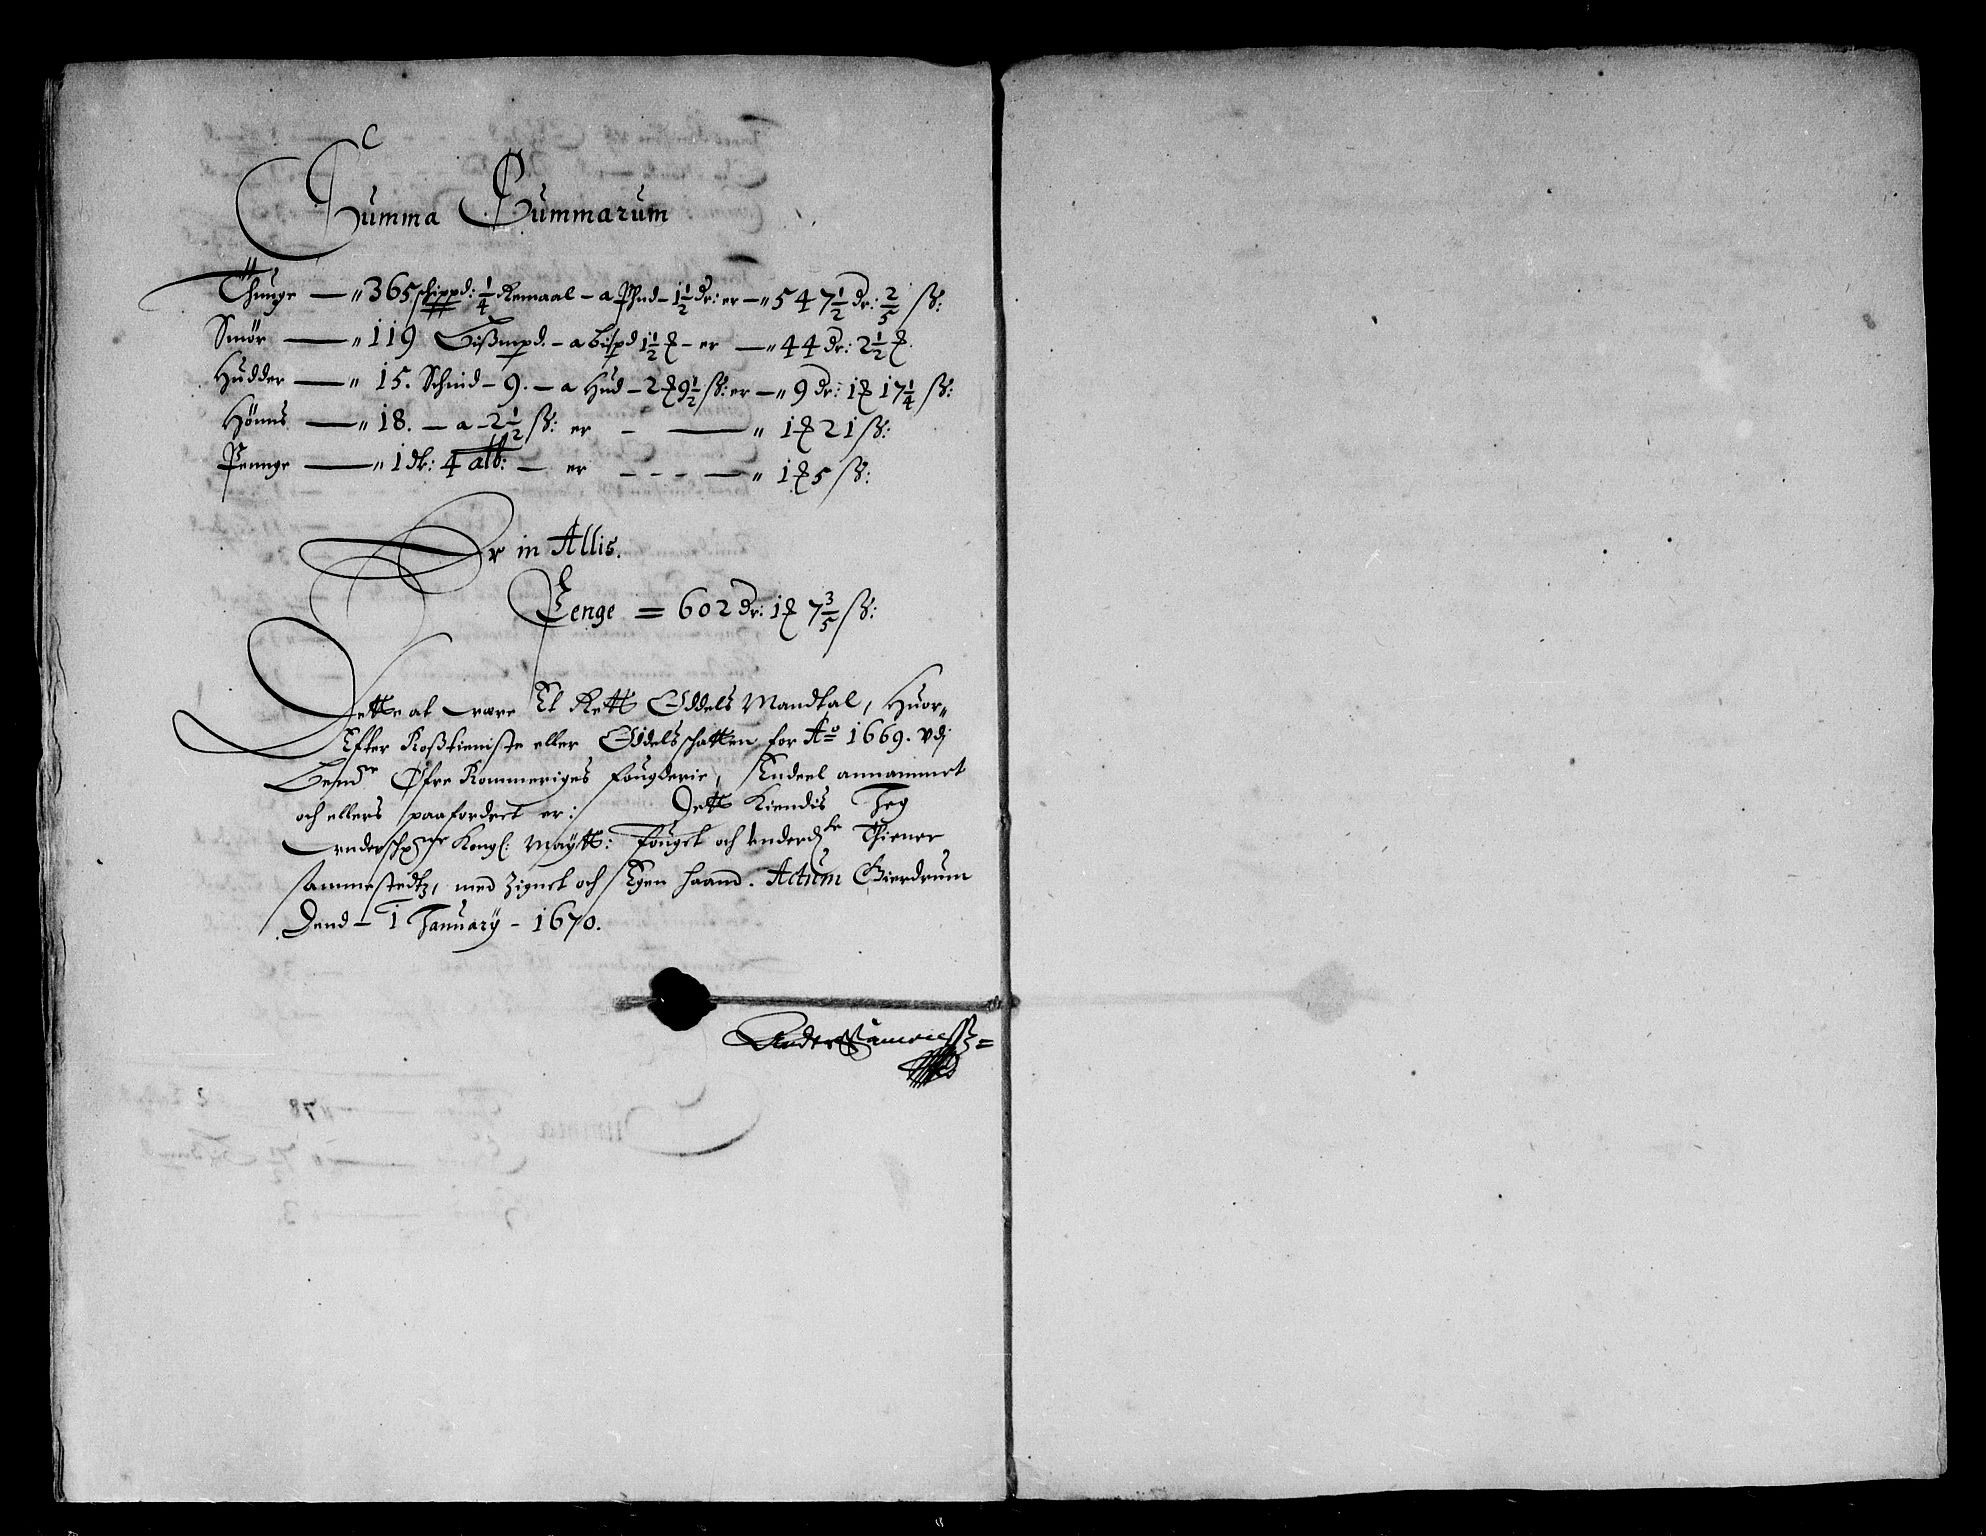 Summa Summarum
Thunge — " 365 schippd: 1/4 Remaal – a Pund – 1 1/2 dr: er – " 547 1/2 dr: 2/5 ß:
Smör — " 119 Bißmpd. – a bispd 1 1/2 ℔ – er — " 44 dr: 2 1/2 ℔.
Hudder — " 15. Schind – 9. – a Hud – 2 ℔ 9 1/2 ß: er – " 9 dr: 1 ℔ 17 1/4 ß:
Hönns — " 18. – a – 2 1/2 ß: er – — " 1 ℔ 21 ß:
Pennge — " 1 dr: 4 alb: – er – – – — " 1 ℔ 5 ß:
Er in Allis.
Penge = 602 dr: 1 ℔ 7 3/5 ß:
Dette at were Et Rett Oddels Mandtal, Huor-
Efter Roßtieniste eller Oddelsschatten for Ao 1669. vdj
Øfre Rommeriges fougderie, Endeel annammet
och ellers paafordret er: Dett Kiendis Jeg
vnderschrne Kongl: Maytt: Fouget och vnderd Thiener
sammestedtz, med Zignet och Egen haand. Actum Gierdrum
Dend – 1 January – 1670.
Anders Simenßz =
Summa